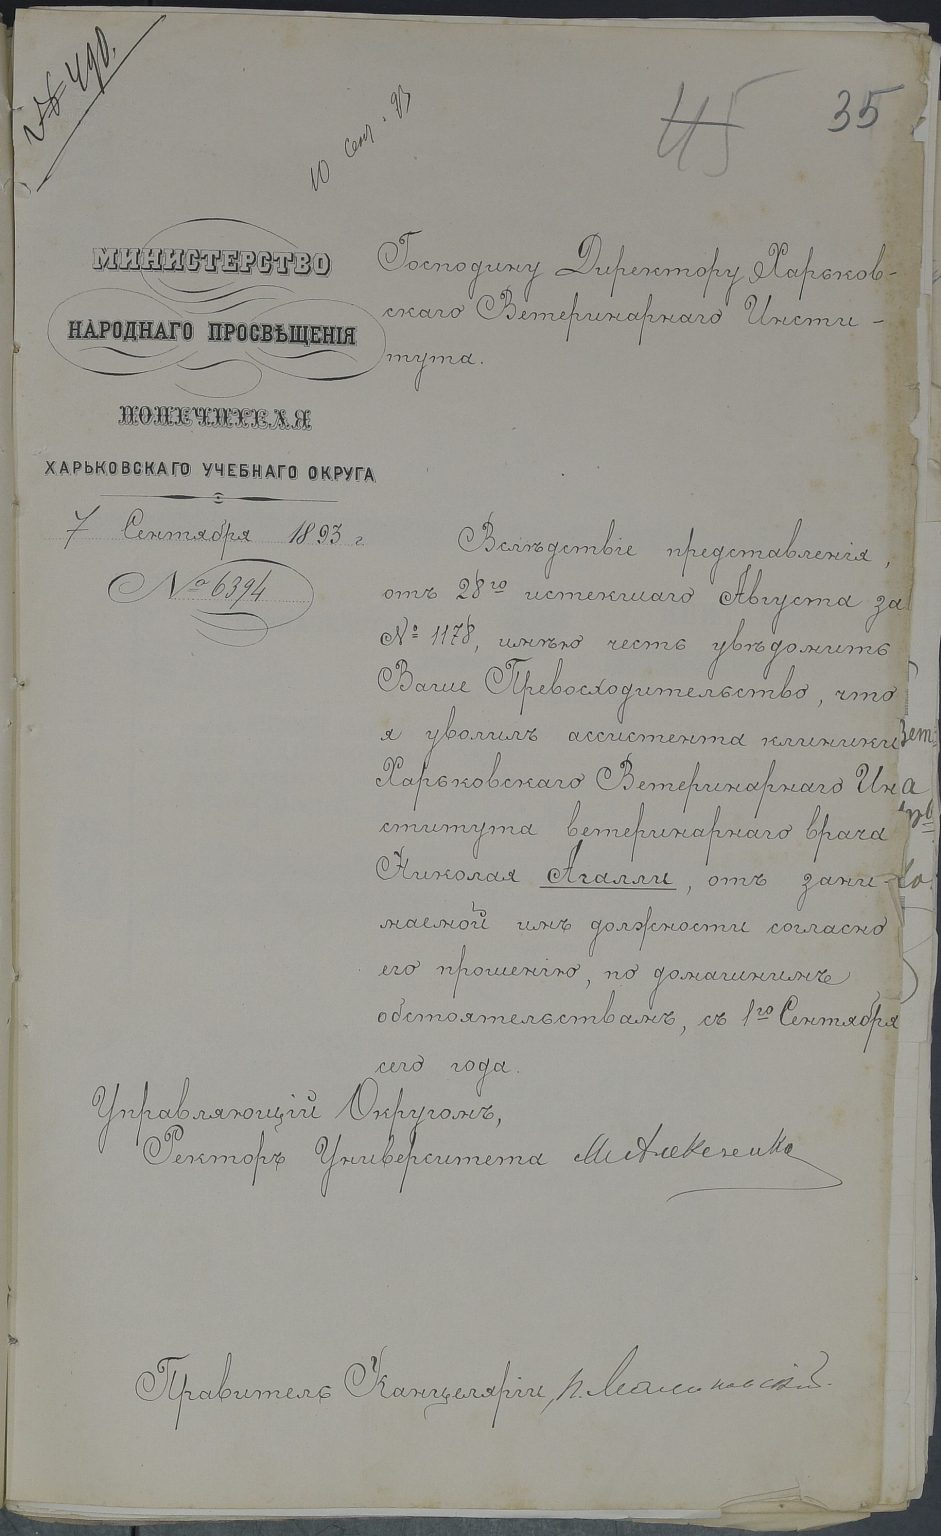 № 490.
10 сент. 93
45 35
МИНИСТЕРСТВО
НАРОДНАГО ПРОСВѢЩЕНІЯ
ХАРЬКОВСКАГО УЧЕБНАГО ОКРУГА
7 Сентября 1893 г.
№ 6394
Господину Директору Харьков-
скаго Ветеринарнаго Инсти-
тута.
Вслѣдствіе представленія,
отъ 28го истекшаго Августа за
№ 1178, имѣю честь увѣдомить
Ваше Превосходительство, что
я уволилъ ассистента клиники
Харьковскаго Ветеринарнаго Ин
ститута ветеринарнаго врача
Николая Агалли, отъ зани-
маемой имъ должности согласно
его прошенію, по домашнимъ
обстоятельствамъ, съ 1го Сентября
сего года.
Управляющій Округомъ,
Ректоръ Университета МАлексенко
Правитель Канцеляріи,